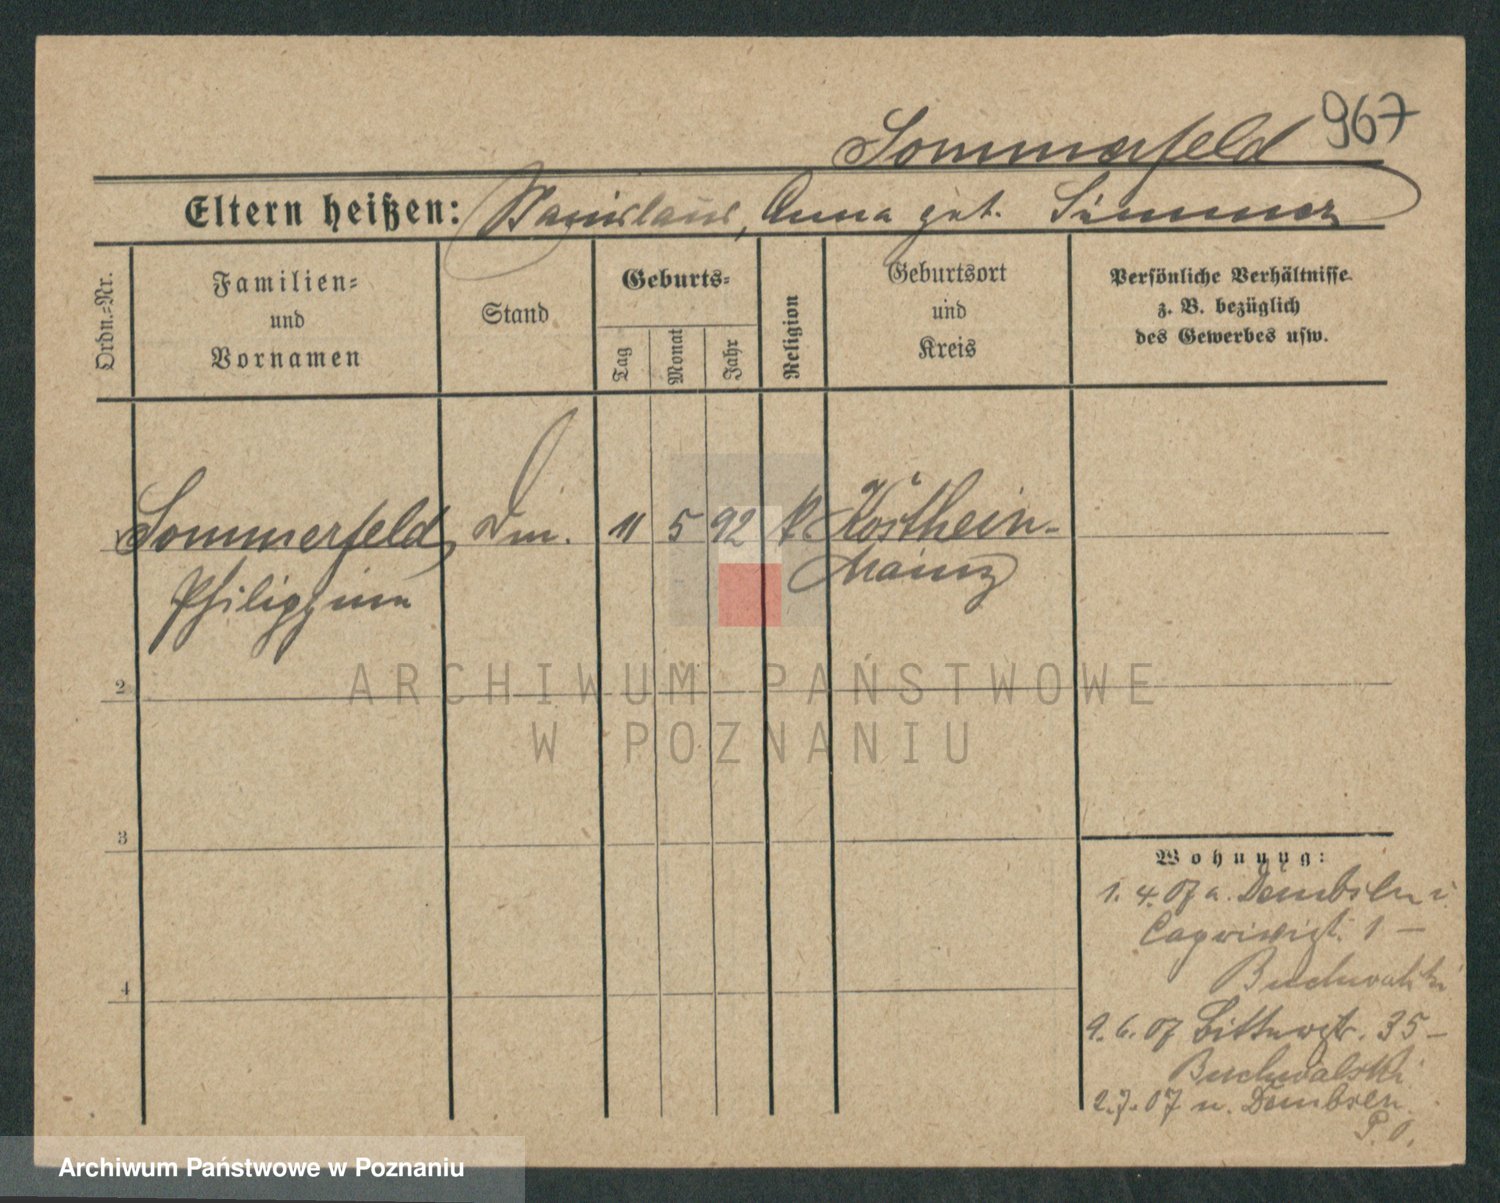 967
Sommerfeld
Eltern heißen: Stanislaus, Anna geb. Simmer
Ordn.=Nr.
Familien=
und
Vornamen
Stand
Geburts=
Tag
Monat
Jahr
Religion
Geburtsort
und
Kreis
Persönliche Verhältnisse
z. B. bezüglich
des Gewerbes usw.
Sommerfeld, Dm. 11 5 92 k Kostheim-
Philippina Mainz
2
ARCHIWUM PAŃSTWOWE
W POZNANIU
3
4
Wohnung:
1. 4. 07 a. Dembsen
Caprivist. 1 –
Buchwalski
9. 6. 07 Bitterstr. 35 –
Buchwalski
2. 7. 07 n. Dembsen
P. O.
Archiwum Państwowe w Poznaniu